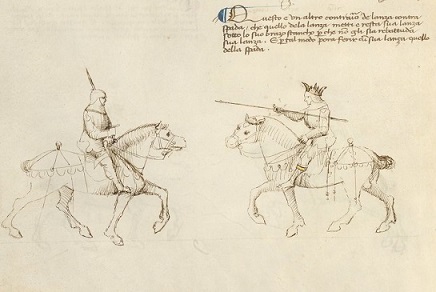 Questo e un altro contrario de lanza contra
spada, che quello dela lanza mette e resta sua lanza
sotto lo suo brazo stancho p che no gli sia rebatuda
sua lanza. E p tal modo pora ferir cu sua lanza quello
della spada.